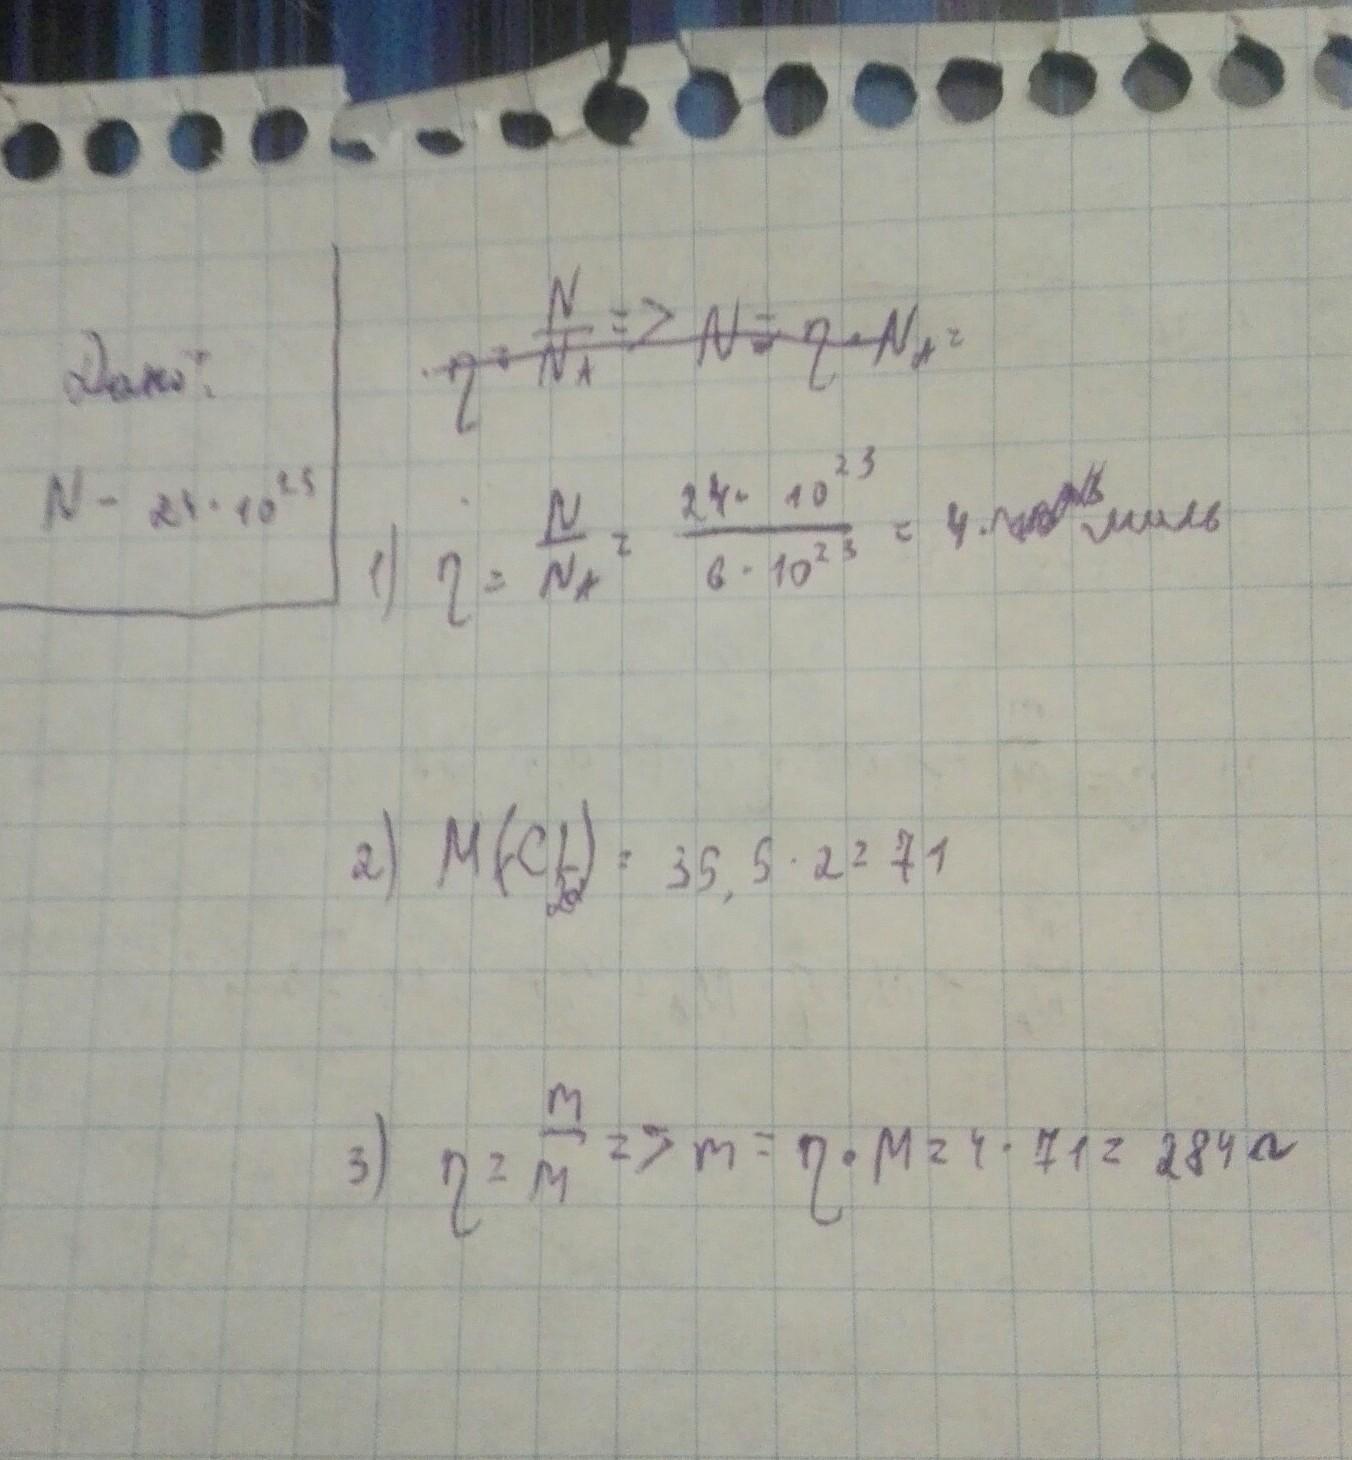 Дано:
N - 24 · 10²³
η = N/NA => N = η · NA =
1) η = N/NA = 24 · 10²³ / 6 · 10²³ = 4 моль
2) M(Cl₂) = 35,5 · 2 = 71
3) η = m/M => m = η · M = 4 · 71 = 284 г